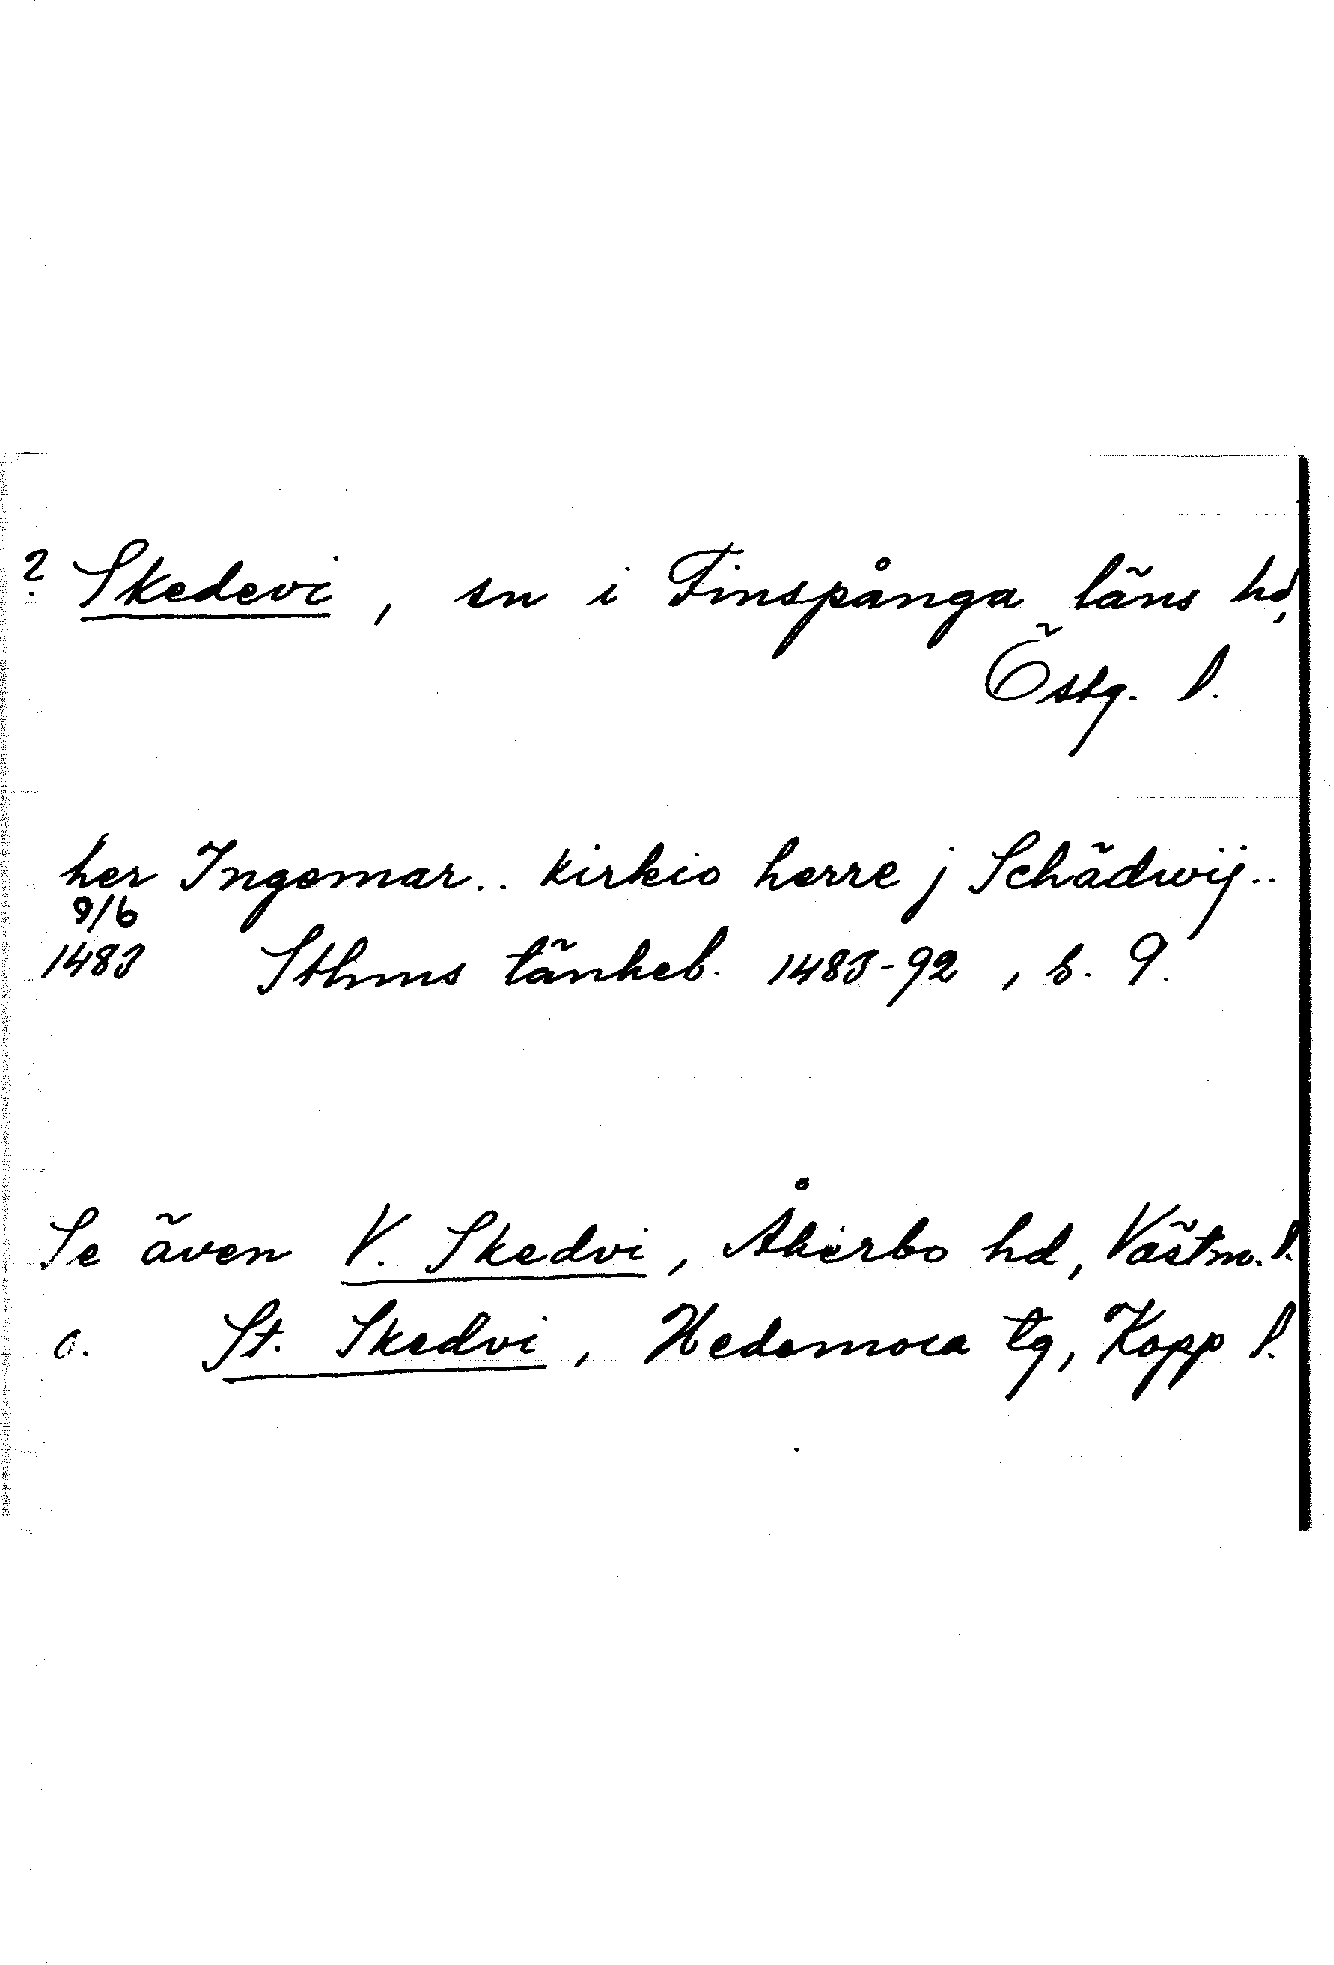 ? Skedevi, sn i Finspånga läns hd,
Östg. l.
her Ingemar.. kirkio herre j Schädwij..
9/6
1483 Sthms tänkeb. 1483-92, s. 9.
Se även V. Skedvi, Åkerbo hd, Västm. l.
o. St. Skedvi, Hedemora tg, Kopp l.